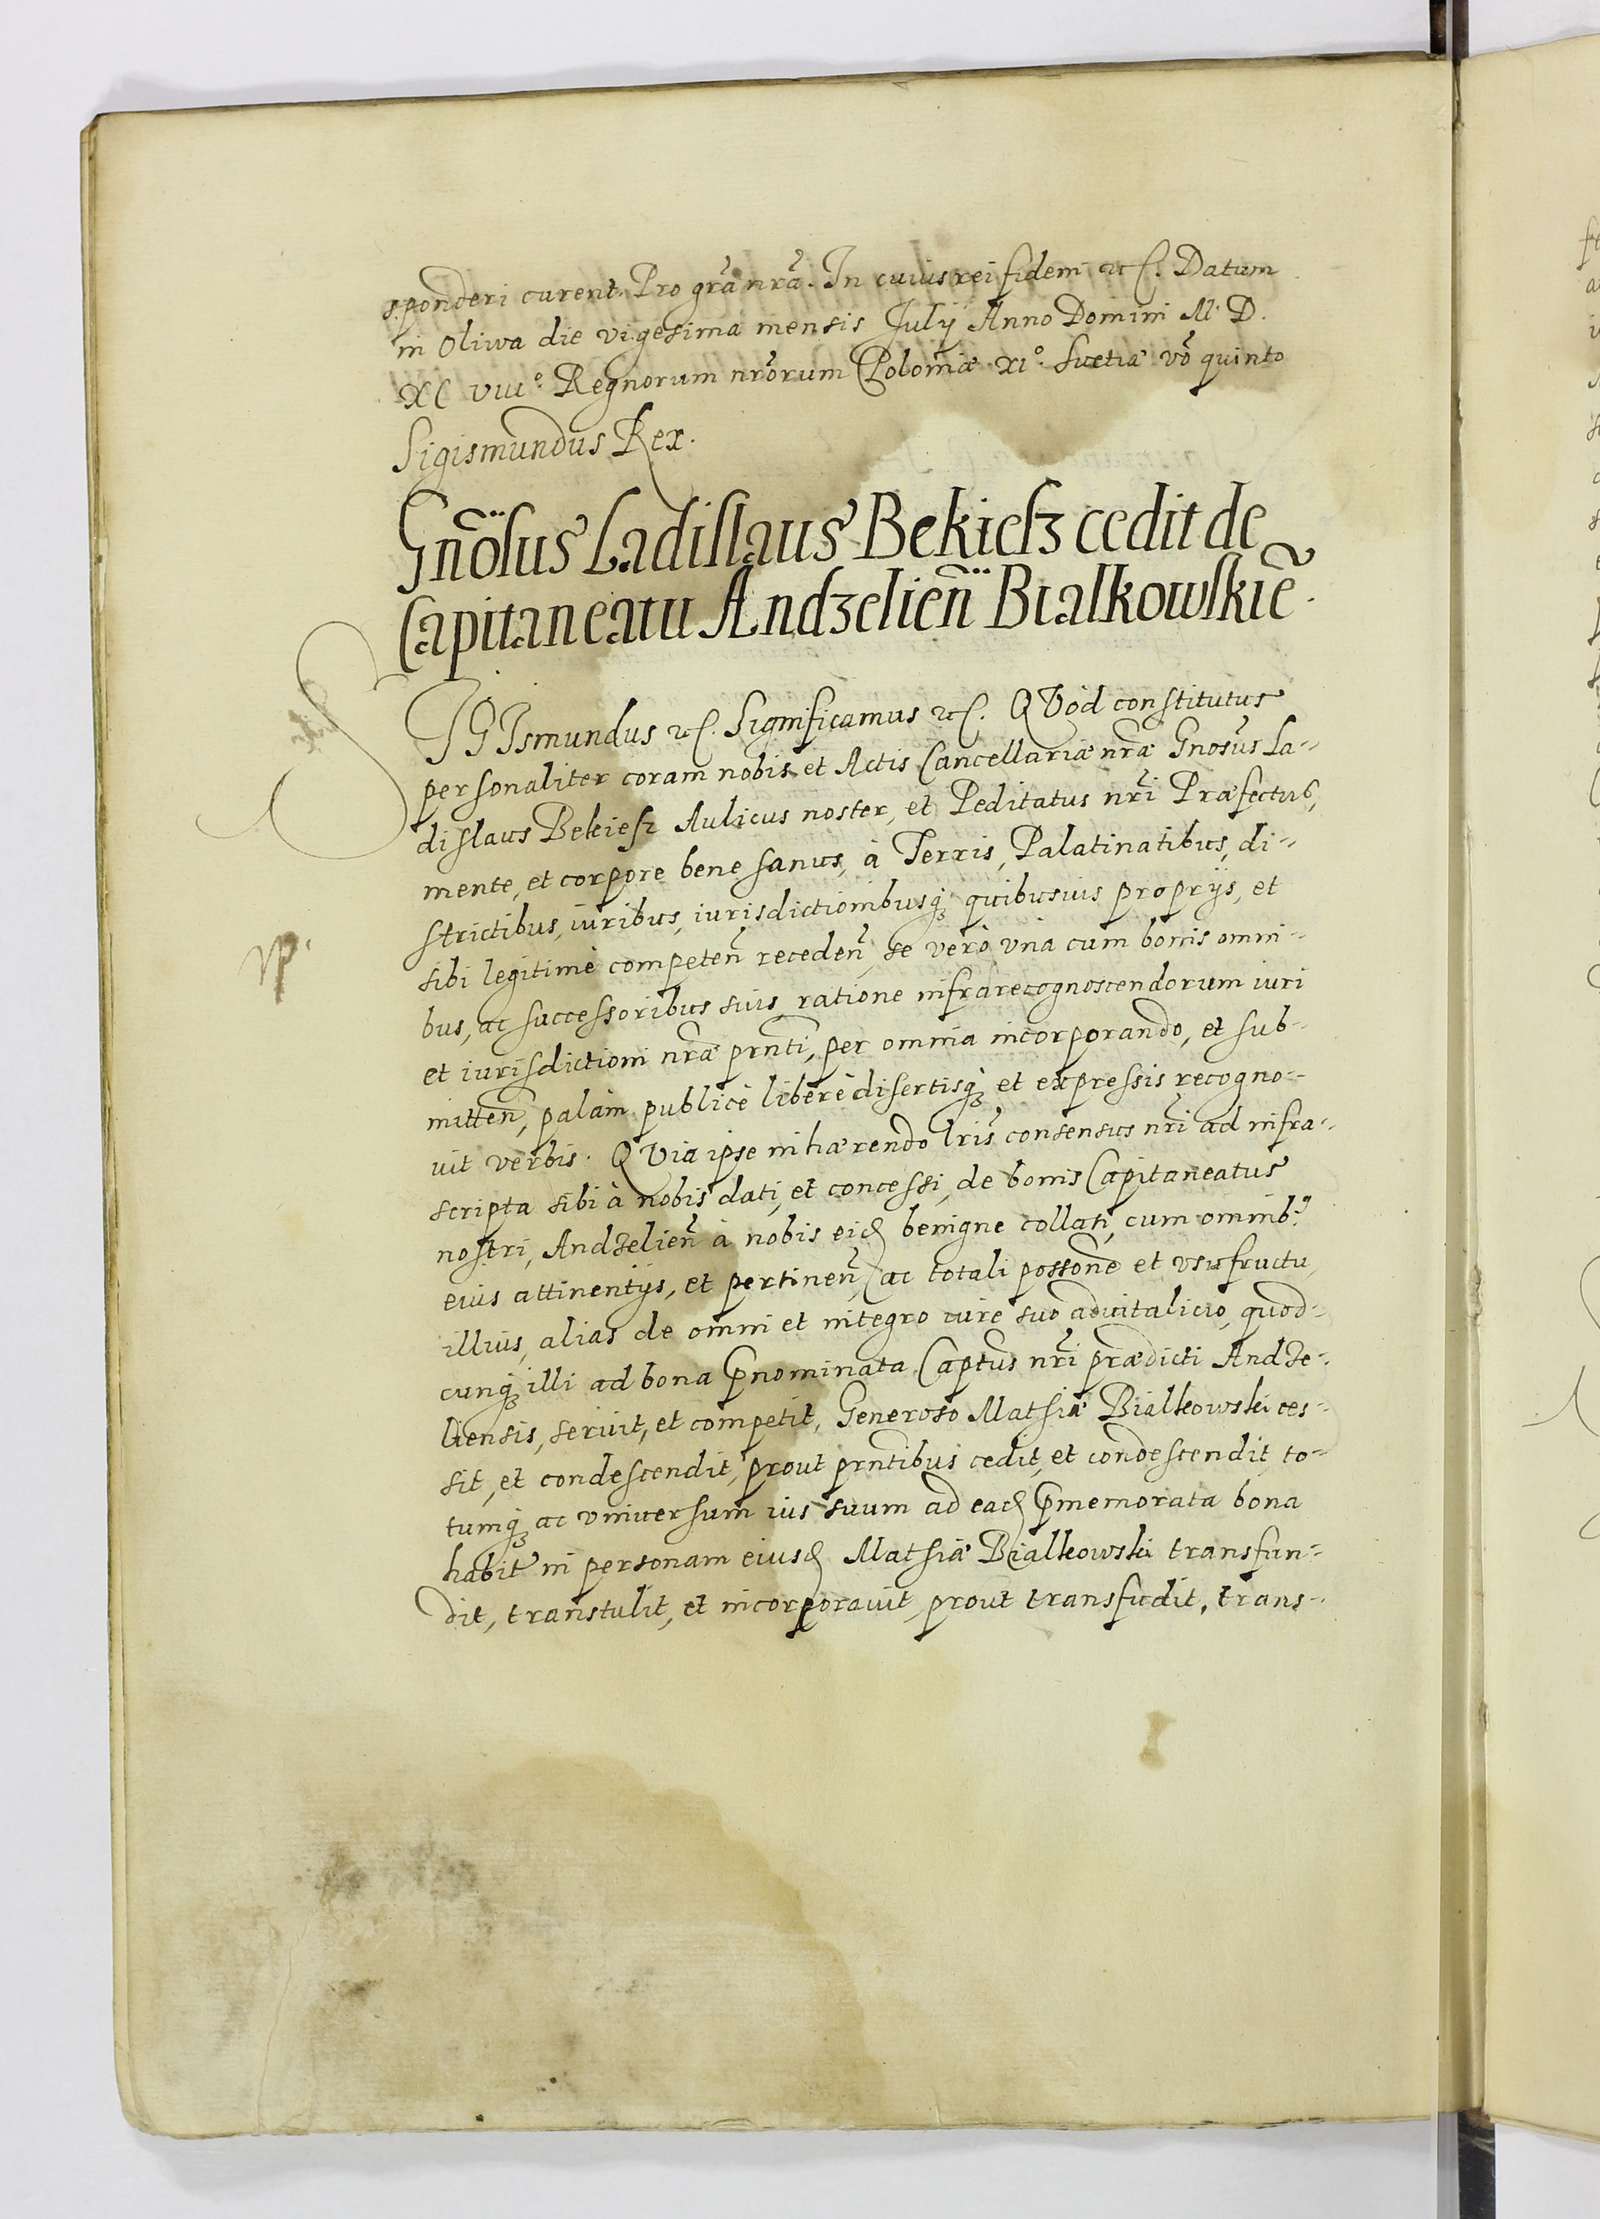 sponderi curent. Pro gr̃a nr̃a. In cuius rei fidem etc. Datum
in Oliwa die vigesima mensis Julÿ Anno Domini M. D.
XC VIII°. Regnorum nr̃orum Poloniæ XI°. Suetiæ võ quinto
Sigismundus Rex.
Gnõsus Ladislaus Bekiesz cedit de
Capitaneatu Andzelien̄ Bialkowskiẽ.
SIGIsmundus etc. Significamus etc. QVod constitutus
personaliter coram nobis et Actis Cancellariæ nr̃æ Gnosus La-
dislaus Bekiesz Aulicus noster, et Peditatus nr̃i Præfectus,
mente, et corpore bene sanus, à Terris, Palatinatibus, di-
strictibus, iuribus, iurisdictionibusq3 quibusuis proprijs, et
vp.
sibi legitimè competen̄ receden̄, se verò vna cum bonis omni-
bus, ac successoribus suis, ratione infrarecognoscendorum iuri
et iurisdictioni nr̃æ prñti, per omnia incorporando, et sub-
mitten̄, palàm publicè liberè disertisq3 et expressis recogno-
uit verbis. QVia ipse inhærendo lris̃ consensus nr̃i ad infra-
scripta sibi à nobis dati, et concessi, de bonis Capitaneatus
nostri, Andzelien̄ à nobis eid benigne collati, cum omnib9
eius attinentijs, et pertinen̄, ac totali posson̄e et vsufructu
illius, alias de omni et integro iure suo aduitalicio, quod-
cunq3 illi ad bona p̄nominata Captus̃ nr̃i prædicti Andze-
liensis, seruit, et competit, Generoso Matsiæ Bialkowski ces-
sit, et condescendit, prout prñtibus cedit, et condescendit, to-
tumq3 ac vniuersum ius suum ad ead p̄memorata bona
habit̃ in personam eiusd Matsiæ Bialkowski transfun-
dit, transtulit, et incorporauit, prout transfudit, trans-